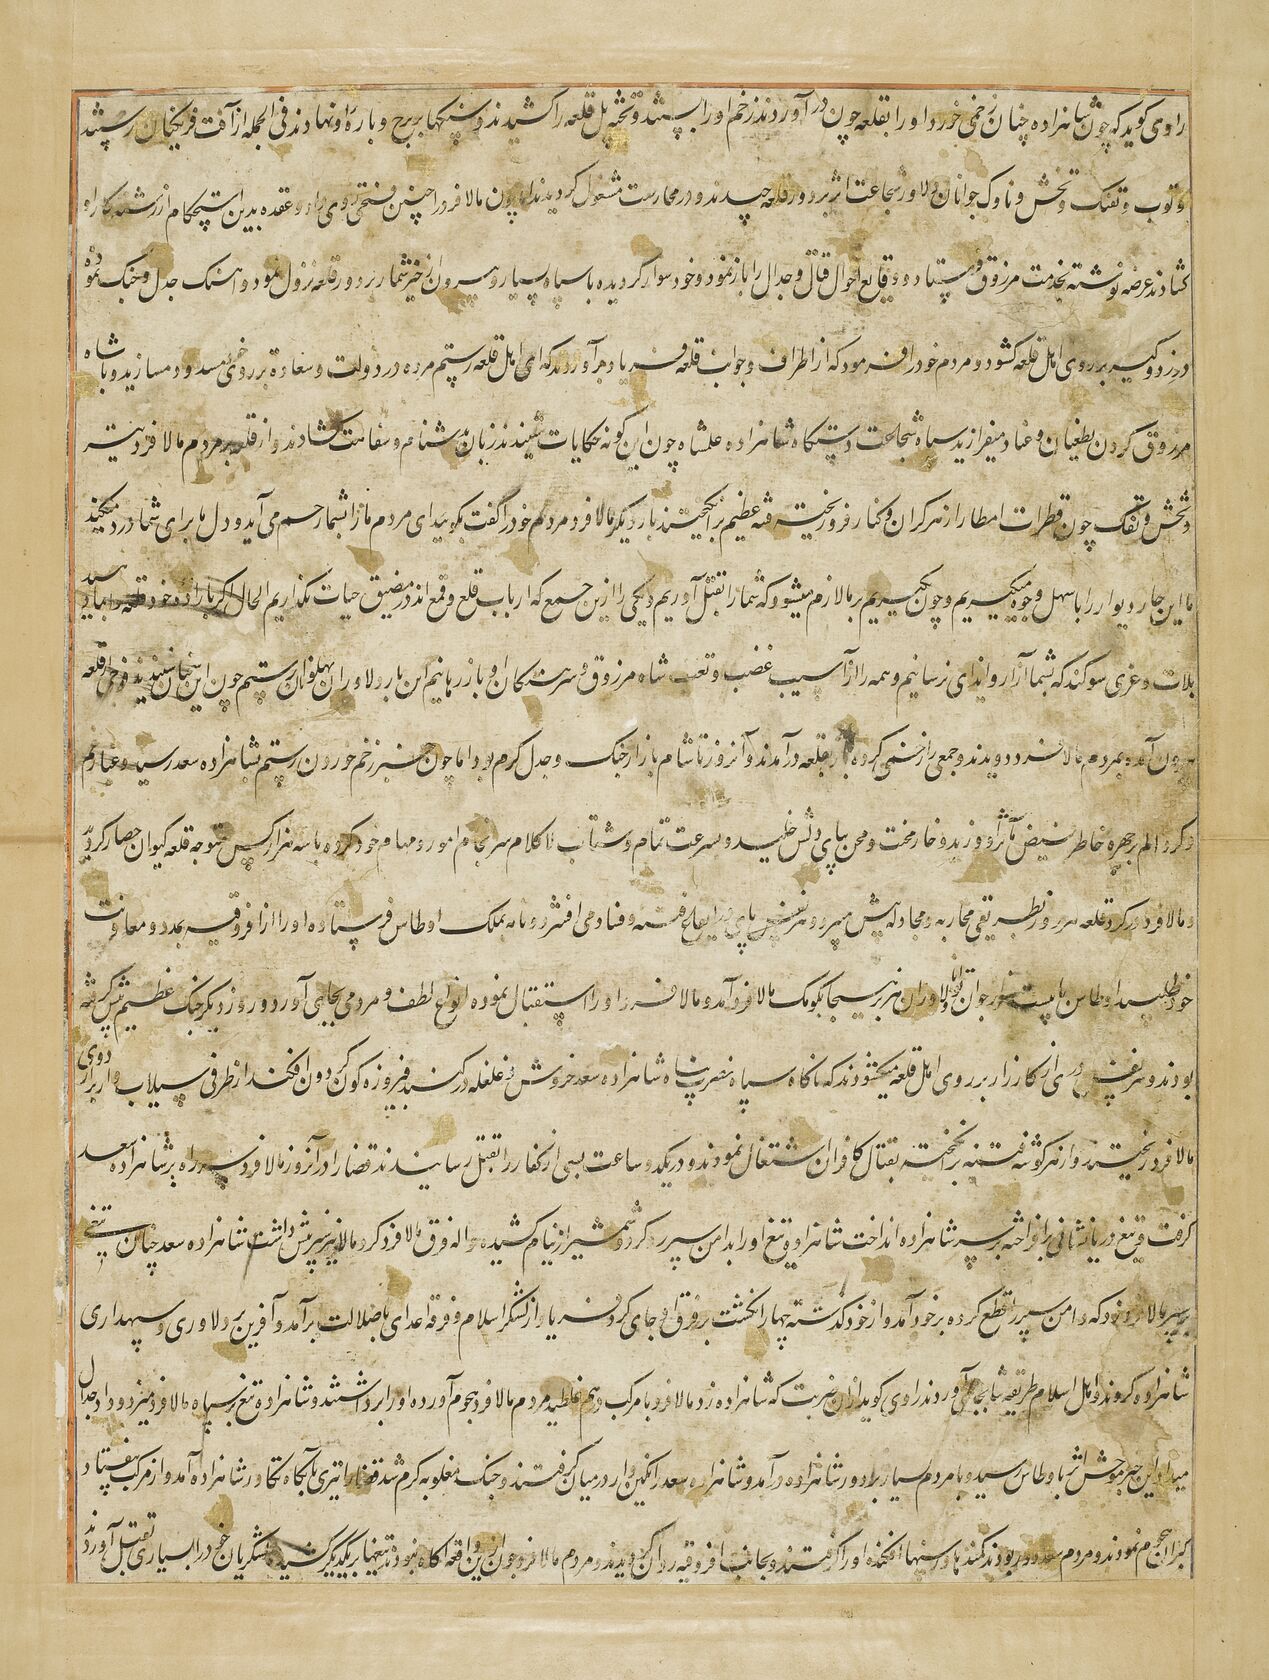 راوی گوید که چون شاهزاده چنان زخمی خورد او را بقلعه چون در آوردند زخم او را ببستند و تخته پل قلعه را کشیدند و سنگها بر برج و باره او نهادند فی الجمله از آفت فرنگیان رستند
و توپ و تفنگ و تخش و ناوک جوانان دلاور شجاعت اثر بر دور قلعه چیدند و در محارست مشغول گردیدند اما چون مالافرد را چنین فتحی روی داد و عقده بدین استحکام از رشته کار او
گشادند عرضه نوشته بخدمت مرزوق فرستاد و وقایع احوال قتال و جدال را باز نمود و خود سوار گردیده با سپاه بسیار و بیرون از حیز شمار بر دور قلعه نزول نمود و اهنک جدل و جنک نموده
در زد و گیر بر روی اهل قلعه گشود و مردم خود را فرمود که از اطراف و جوانب قلعه فریاد بر آوردند که ای اهل قلعه رستم مرده در دولت و سعادة بر روی خود مسدود مسازید و با شاه
مرزوق گردن بطغیان و عناد میفرازید سپاه شجاعت دستگاه شاهزاده علمشاه چون این گونه حکایات شنیدند زبان بدشنام و سفاهت گشادند و از قلعه بر مردم مالافرد تیر
و تخش و تفنک چون قطرات امطار از هر کران و کنار فرو ریخته فتنه عظیم بر انگیختند بار دیگر مالافرد مردم خود را گفت بگویید ای مردم ما را بشما رحم می آید و دل ما برای شما درد میکند
ما این چار دیوار را باسهل وجوه میگیریم و چون بگیریم بر ما لازم میشود که شما را بقتل آوریم و یکی را ازین جمع که ارباب قلع و قمع اند در مضیق حیات نگذاریم الحال اگر باراده خود قلعه را بما دهید
بلات و عزی سوگند که بشما آزار و ایذای نرسانیم و همه را از آسیب غضب و تعب شاه مرزوق و سرهنگان او باز رهانیم این بار دلاوران پهلوان رستم چون این سخنان شنیدند فوجی از قلعه
بیرون آمده بمردم مالافرد دویدند و جمعی را زخمی کرده باز بقلعه در آمدند و آنروز تا شام بازار جنک و جدل گرم بود اما چون خبر زخم خوردن رستم بشاهزاده سعد رسید و غبار غم
و گرد الم بر چهره خاطر فیض مآثر او وزید و خار محنت و محن بپای دلش خلید و بسرعت تمام و شتاب لاکلام سرنجام امور و مهام خود کرده با سه هزار کس متوجه قلعه کیوان حصار گردید
و مالافرد در گرد قلعه هر روز بطریقی محاربه و مجادله پیش میبرد و هر نفس پای در ایقاع فتنه و فساد می افشرد و نامه بملک اوطاس فرستاده او را از افروقیه بمدد و معاونت
خود طلبید اوطاس با بیست هزار جوان توانا و دلاوران هنر بر هیجا بکومک مالافرد آمد و مالافرد او را استقبال نموده انواع لطف و مردمی بجای آورد و روز دیگر جنک عظیم پیش گرفته
بودند و هر نفس دری از کارزار بر روی اهل قلعه میگشودند که ناگاه سپاه نصرت پناه شاهزاده سعد خروش و غلغله در گنبد فیروزه گون گردون افکند از طرفی سیلاب وار بر اردوی
مالافرد ریختند و از هر گوشه فتنه بر انگیخته بقتال کافران اشتغال نمودند و در یکدو ساعت بسی از کفار را بقتل رسانیدند قضا را در آنروز مالافرد سر راه بر شاهزاده سعد
گرفت و تیغ در یازشانی بر افراخته بر سر شاهزاده انداخت شاهزاده تیغ او را بدامن سپر رد کرد و شمشیر از نیام کشیده حواله فرق مالافرد کرد مالافرد سپر پیش داشت شاهزاده سعد چنان تیغی
بر سپر مالافرد زد که دامن سپر را قطع کرده بر خود آمد و از خود گذشته چهار انگشت بر فرق او جای کرد و فریاد از لشکر اسلام و فرقه اعدای با ضلالت بر آمد و آفرین بر دلاوری و سپهداری
شاهزاده کردند و اهل اسلام طریقه شا بجای آوردند راوی گوید از آن ضربت که شاهزاده زد مالافرد با مرکب در هم غلطید مردم مالافرد هجوم آورده او را برداشتند و شاهزاده تیغ بر سپاه مالافرد میزد و داد جدال
میداد این خبر موحش اثر باوطاس رسید و با مردم بسیار بر دور شاهزاده در آمد و شاهزاده سعد را نگین وار در میان گرفتند و جنک مغلوبه گرم شد قضا را تیری بر تهیگاه تکاور شاهزاده آمد و از مرکب بیفتاد
گبران هجوم نمودند و مردم سعد دور بودند کمند ها و رسنها افکنده او را گرفتند و بجانب افروقیه روان گردیدند و مردم مالافرد چون ازین واقعه آگاه نبودند تیغها بر یکدیگر کشیده لشکریان خود را بسیاری بقتل آوردند